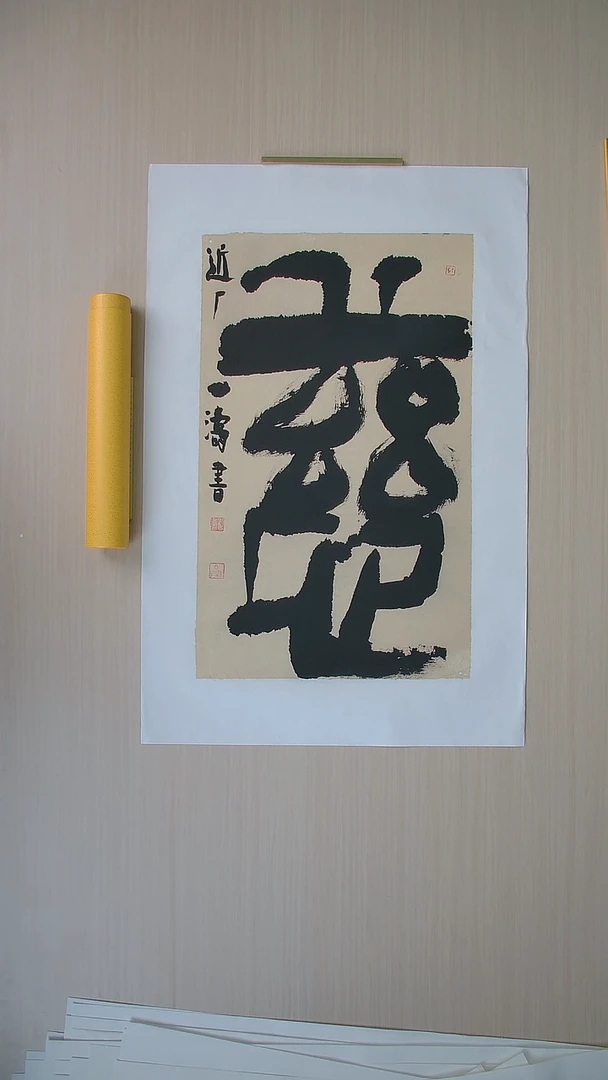 慈
近厂一濤書